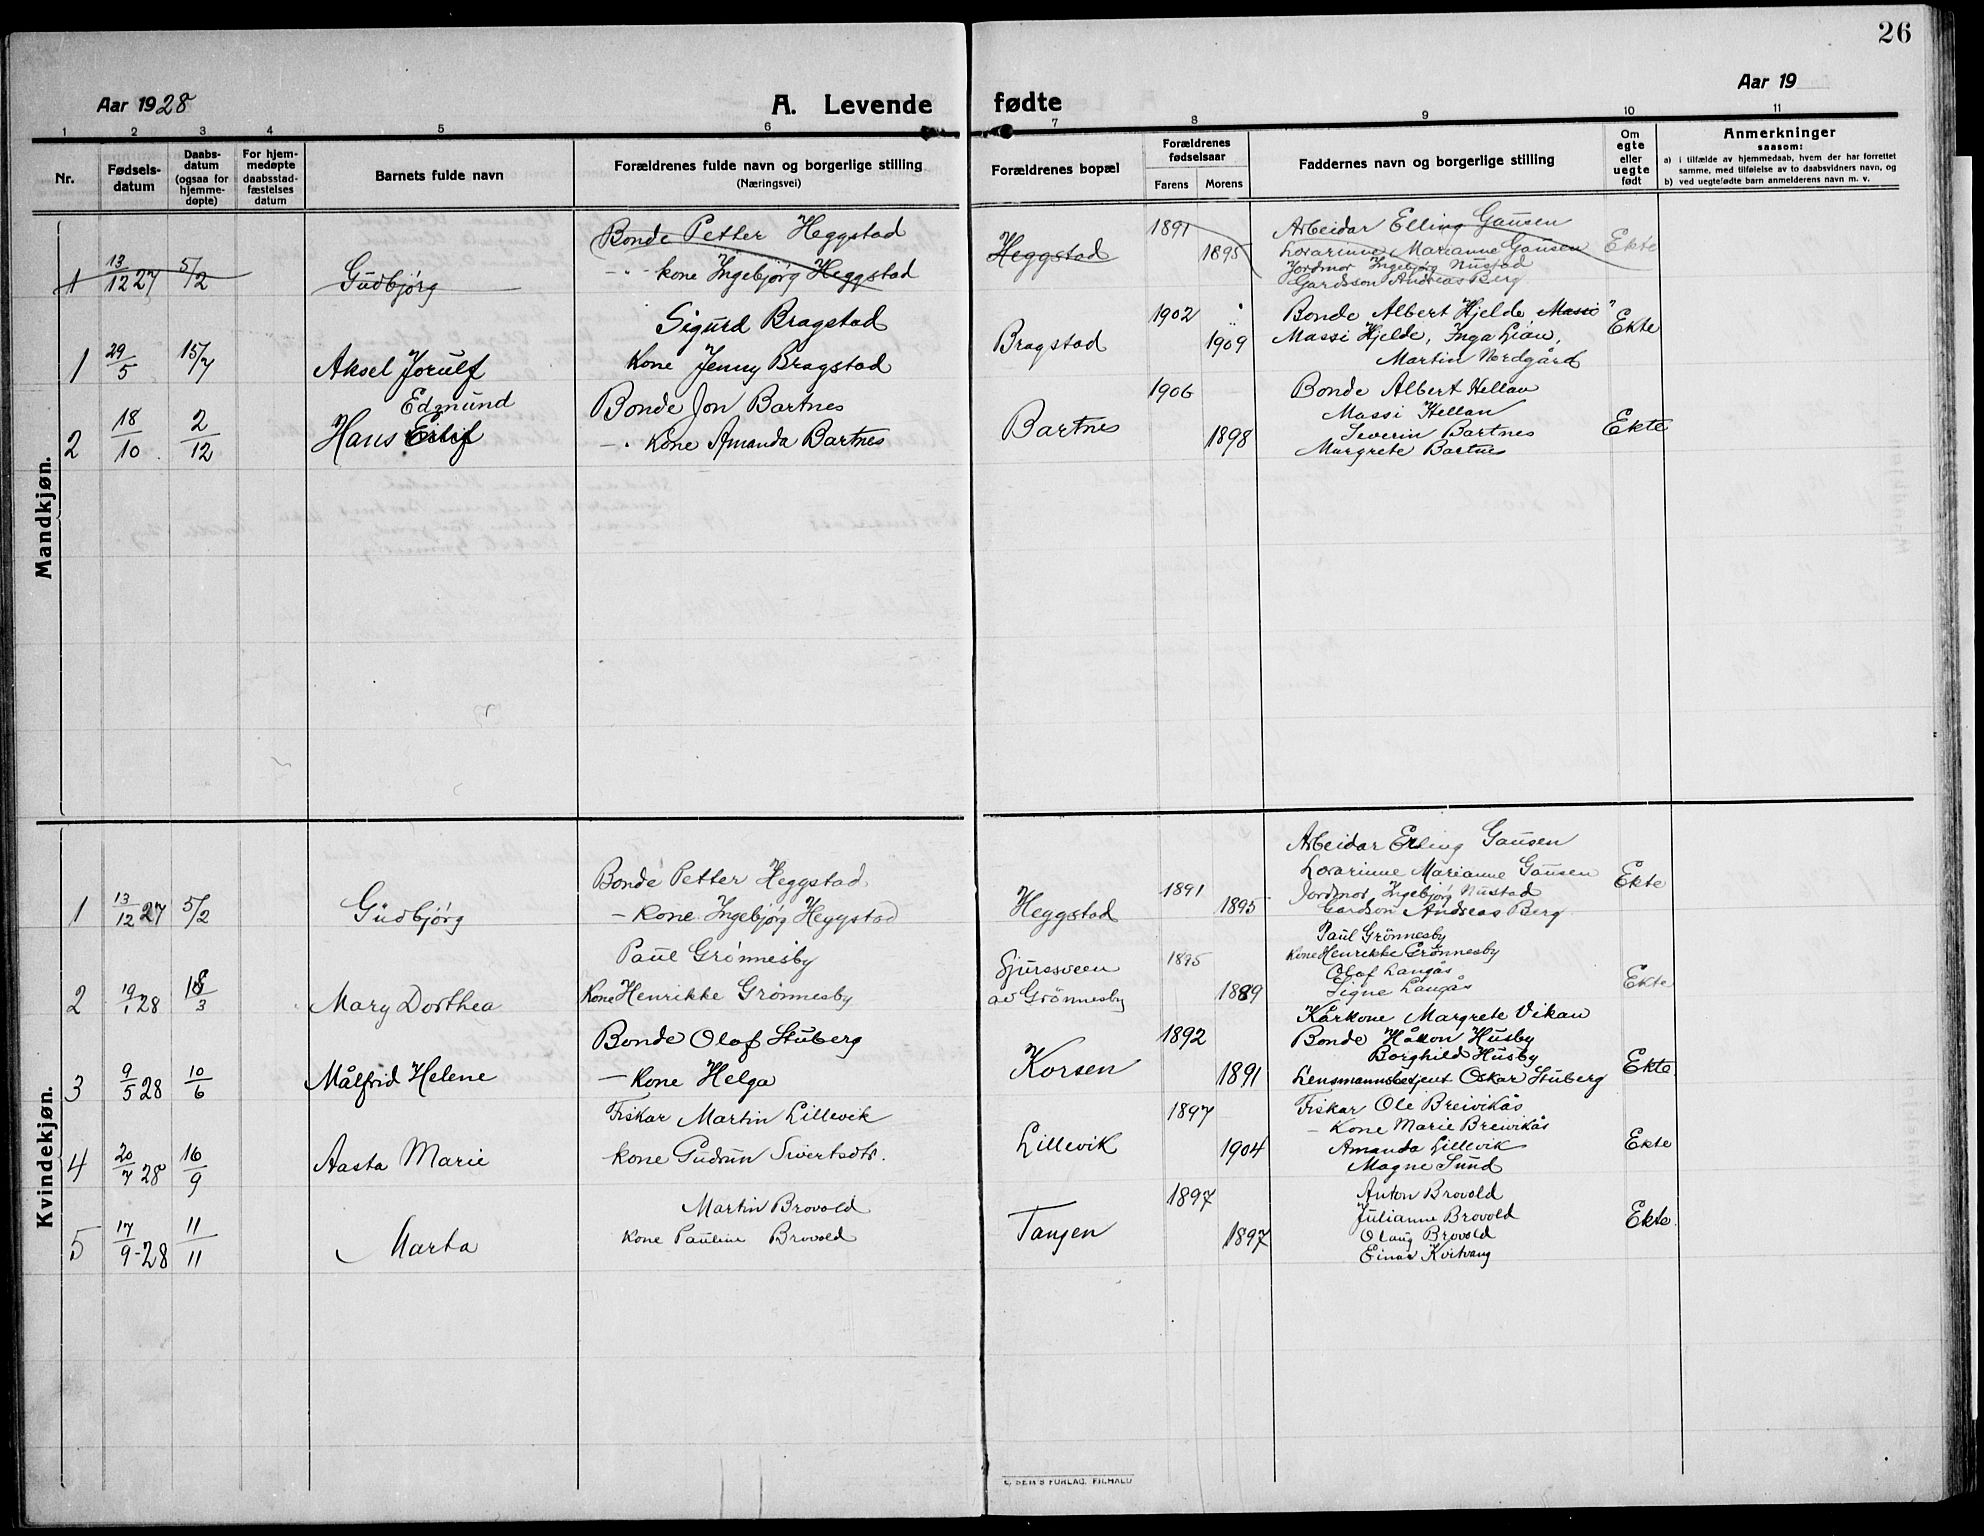 26
Aar 1928
A. Levende fødte
Aar 19
1 2 3 4 5 6 7 8 9 10 11
Nr.
Fødsels-
datum
Daabs-
datum
(ogsaa for
hjemme-
døpte)
For hjem-
medøpte
daabsstad-
fæstelses
datum
Barnets fulde navn
Forældrenes fulde navn og borgerlige stilling
(Næringsvei)
Forældrenes bopæl
Forældrenes
fødselsaar
Farens Morens
Faddernes navn og borgerlige stilling
Om
egte
eller
uegte
født
Anmerkninger
saasom:
a) i tilfælde av hjemmedaab, hvem der har forrettet
samme, med tilføielse av to daabsvidners navn, og
b) ved uegtefødte barn anmelderens navn m. v.
Mandkjøn.
1 13/12 27 5/2 Gudbjørg
Bonde Petter Heggstad
-"- kone Ingebjørg Heggstad
Heggstad 1891 1895
Arbeidar Elling Gausen
Lorarinne Marianne Gausen
Jordmor Ingebjørg Nustad
Gardsson Andreas Berg
Ekte
1 29/5 15/7 Aksel Jorulf
Sigurd Bragstad
Kone Jenny Bragstad
Bragstad 1902 1909
Bonde Albert Hjelde, Massi
Massi Hjelde, Inga Lian,
Martin Nordgård
Ekte
2 18/10 2/12 Edmund
Hans Eilif
Bonde Jon Bartnes
-"- Kone Amanda Bartnes
Bartnes 1906 1898
Bonde Albert Hellan
Massi Hellan
Severin Bartnes
Margrete Bartnes
Ekte
Kvindekjøn.
1 13/12 27 5/2 Gudbjørg
Bonde Petter Heggstad
- Kone Ingebjørg Heggstad
Heggstad 1891 1895
Arbeidar Erling Gausen
Lorarinne Marianne Gausen
Jordmor Ingebjørg Nustad
Gardson Andreas Berg
Ekte
2 19/1 28 18/3 Mary Dorthea
Paul Grønnesby
Kone Henrikke Grønnesby
Sjuresveen
av Grønnesby
1895 1889
Paul Grønnesby
Kone Henrikke Grønnesby
Olaf Langås
Signe Langås
Ekte
3 9/5 28 10/6 Målfrid Helene
Bonde Olaf Stuberg
- Kone Helga
Korsen 1892 1891
Kårkone Margrete Vikan
Bonde Håkon Husby
Borghild Husby
Lensmannsbetjent Oskar Stuberg
Ekte
4 20/7 28 16/9 Aasta Marie
Fiskar Martin Lillevik
Kone Gudrun Sivertsdtr.
Lillevik 1897 1904
Fiskar Ole Breivikås
- Kone Marie Breivikås
Amanda Lillevik
Magne Sund
Ekte
5 17/9-28 11/11 Marta
Martin Brovold
Kone Pauline Brovold
Tangen 1897 1897
Anton Brovold
Julianne Brovold
Olaug Brovold
Einar Kvitvang
Ekte.